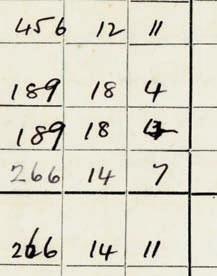 456 12 11
189 18 4
189 18
266 14 7
266 14 11